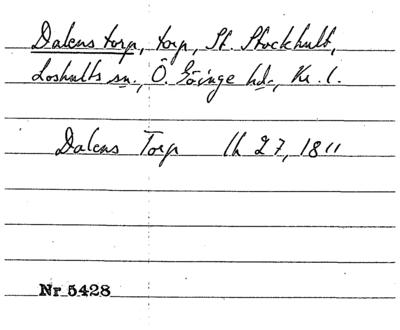 Dalens torp, torp, St. Stockhult,
Loshults sn., Ö. Göinge hd., Kr. l.
Dalens Torp lh 27, 1811
Nr 5428